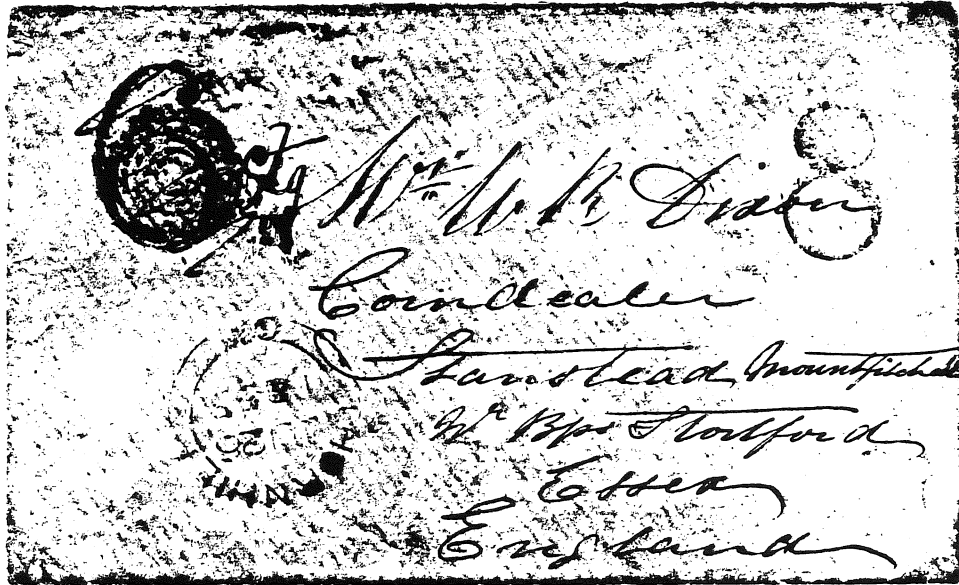 Mr. W. R. Dixon
Corndealer
Stanstead Mountfitchell
Nr. Bps Stortford
Essex
England